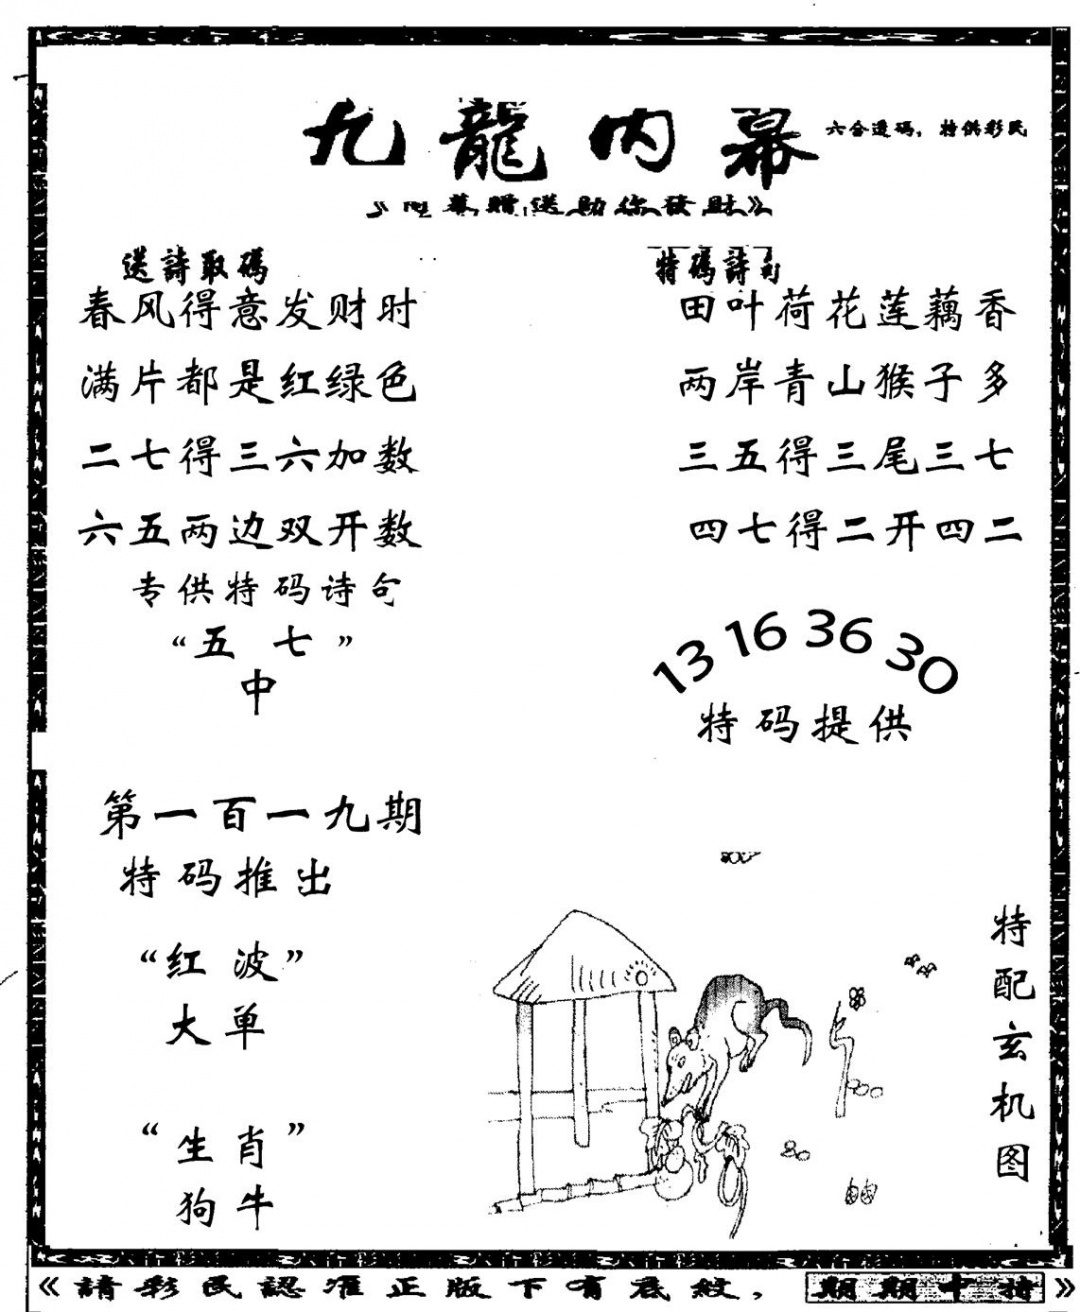 九龍内幕
六合透码，特供彩民
《内幕赠送助你發財》
送詩取碼
春风得意发财时
满片都是红绿色
二七得三六加数
六五两边双开数
专供特码诗句
“五七”
中
特碼詩句
田叶荷花莲藕香
两岸青山猴子多
三五得三尾三七
四七得二开四二
13 16 36 30
特码提供
第一百一九期
特码推出
“红波”
大单
“生肖”
狗牛
特配玄机图
《請彩民認准正版下有底紋，期期中特》